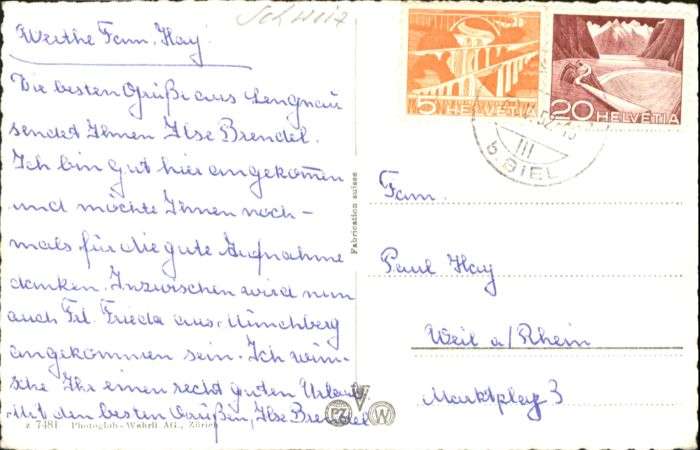 Schweiz
Werthe Fam. Hay.
Die besten Grüße aus Lengnau
sendet Ihnen Ilse Brendel.
Ich bin gut hier angekommen
und möchte Ihnen noch-
mals für die gute Aufnahme
danken. Inzwischen wird nun
auch Frl. Frieda aus Münchberg
angekommen sein. Ich wün-
sche Ihr einen recht guten Urlaub.
Mit den besten Grüßen, Ilse Brendel
z 7481 Photoglob-Wehrli AG., Zürich
Fabrication suisse
PZ W
5 HELVETIA
20 HELVETIA
III
b. BIEL
Fam.
Paul Hay
Weil a/Rhein
Marktplatz 3